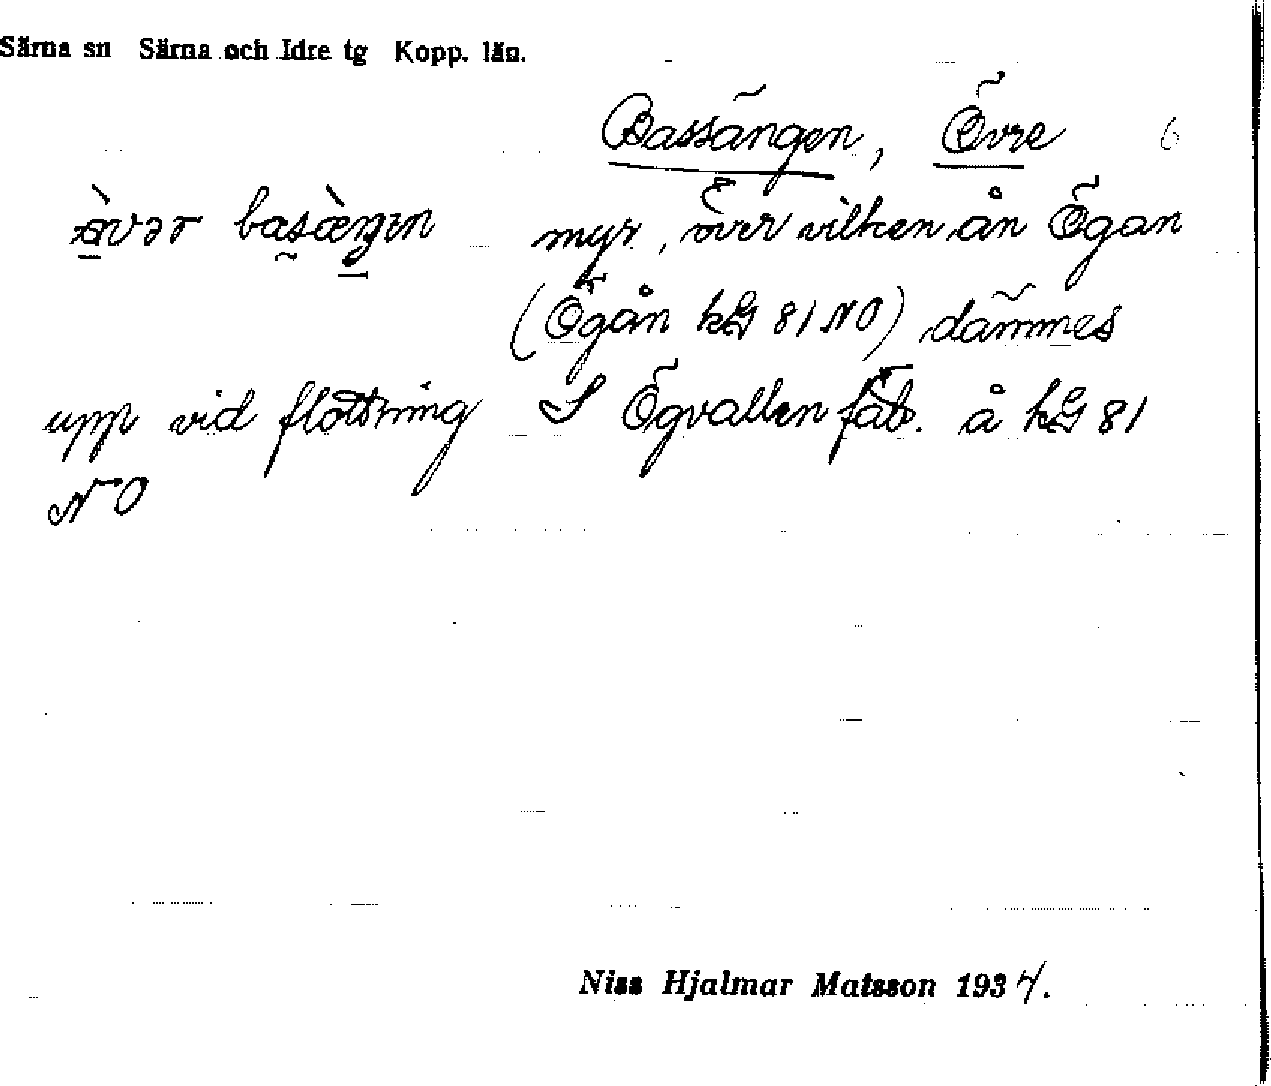 Särna sn Särna och Idre tg Kopp. län.
Bassängen, Övre 6
myr, över vilken ån Ögan
(Ögån kG 81 NO) dämmes
upp vid flottning S Ögvallen fäb. å kG 81
NO
Niss Hjalmar Matsson 1934.